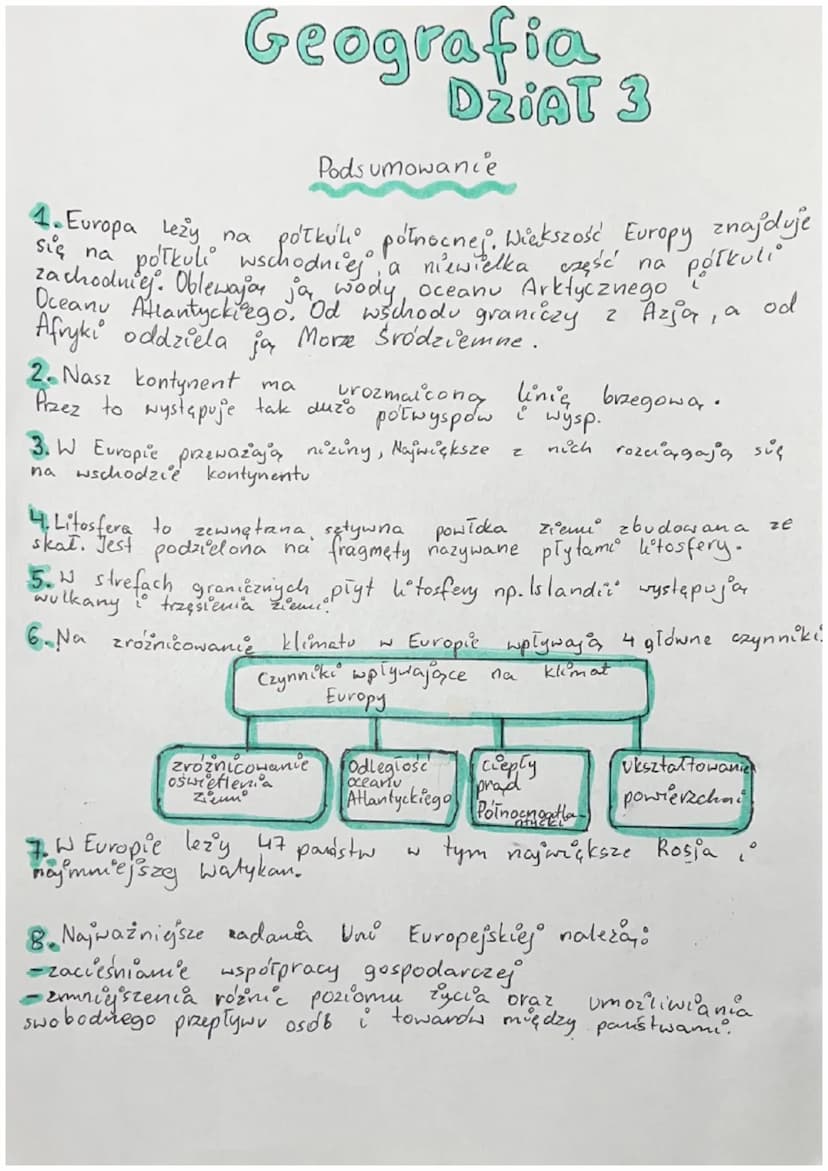 Geografia
DZiAŁ 3
Podsumowanie
1. Europa leży na półkuli północnej. Większość Europy znajduje
się na półkuli wschodniej, a niewielka część na półkuli
zachodniej. Oblewają ją wody oceanu Arktycznego i
Oceanu Atlantyckiego. Od wschodu graniczy z Azją, a od
Afryki oddziela ją Morze Śródziemne.
2. Nasz kontynent ma urozmaiconą linię brzegową.
Przez to występuje tak dużo półwyspów i wysp.
3. W Europie przeważają niziny, Największe z nich rozciągają się
na wschodzie kontynentu
4. Litosfera to zewnętrzna, sztywna powłoka ziemi zbudowana ze
skał. Jest podzielona na fragmęty nazywane płytami litosfery.
5. W strefach granicznych płyt litosfery np. Islandii występują
wulkany i trzęsienia ziemi.
6. Na zróżnicowanie klimatu w Europie wpływają 4 główne czynniki:
Czynniki wpływające na klimat
Europy
zróżnicowanie
oświetlenia
ziemi
Odległość
oceanu
Atlantyckiego
ciepły
prąd
Północnoatla-
ntycki
ukształtowanie
powierzchni
7. W Europie leży 47 państw w tym największe Rosja i
najmniejszej Watykan.
8. Najważniejsze zadania Uni Europejskiej należą:
- zacieśnianie współpracy gospodarczej
- zmniejszenia różnic poziomu życia oraz umożliwiania
swobodnego przepływu osób i towarów między państwami.